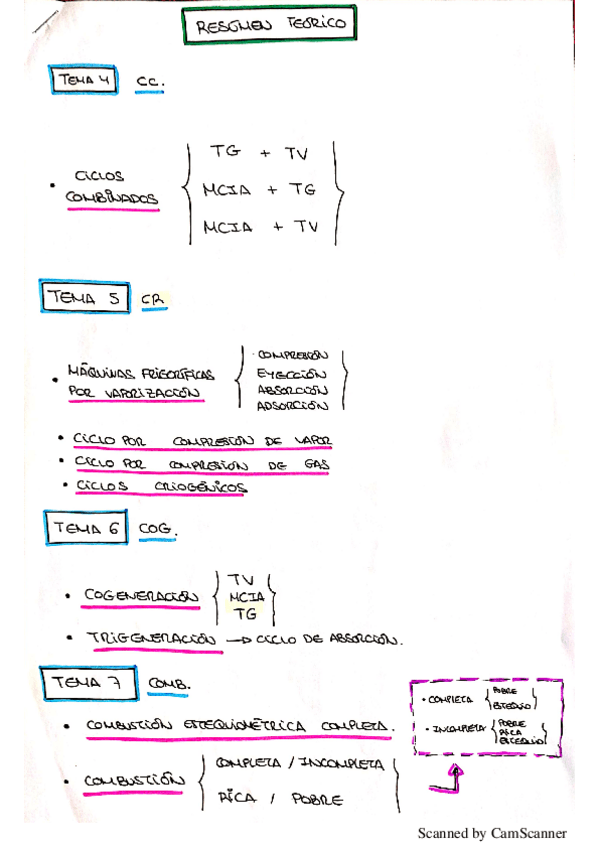 RESUMEN TEÓRICO
TEMA 4 CC.
• CICLOS COMBINADOS
TG + TV
MCIA + TG
MCIA + TV
TEMA 5 CR
• MÁQUINAS FRIGORÍFICAS
POR VAPORIZACIÓN
· COMPRESIÓN
EYECCIÓN
ABSORCIÓN
ADSORCIÓN
• CICLO POR COMPRESIÓN DE VAPOR
• CICLO POR COMPRESIÓN DE GAS
• CICLOS CRIOGÉNICOS
TEMA 6 COG.
• COGENERACIÓN
TV
MCIA
TG
• TRIGENERACIÓN → CICLO DE ABSORCIÓN.
TEMA 7 COMB.
• COMBUSTIÓN ESTEQUIOMÉTRICA COMPLETA.
• COMBUSTIÓN
COMPLETA / INCOMPLETA
RICA / POBRE
• COMPLETA
POBRE
ESTEQUIO
• INCOMPLETA
POBRE
RICA
ESTEQUIO
Scanned by CamScanner